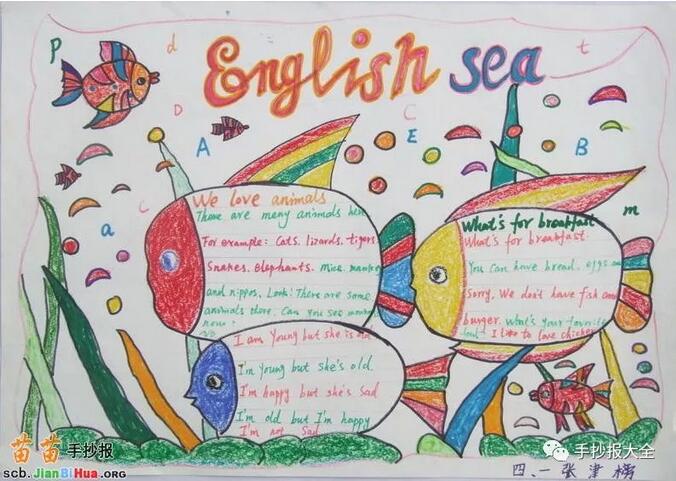 English sea
P
d
t
D
A
C
E
B
C
a
m
We love animals
There are many animals here
For example: Cats. lizards. tigers
Snakes. elephants. mice.
and hippos. Look! There are some
animals there. Can you see
now?
No
What's for breakfast
What's for breakfast.
You can have bread. eggs
Sorry. We don't have fish and
burger. What's your favorite
I like to love chicken
I am young but she is old
I'm young but she's old.
I'm happy but she's sad
I'm old but I'm happy
I'm not sad
苗苗手抄报
scb.JianBiHua.ORG
手抄报大全
四、一 张津